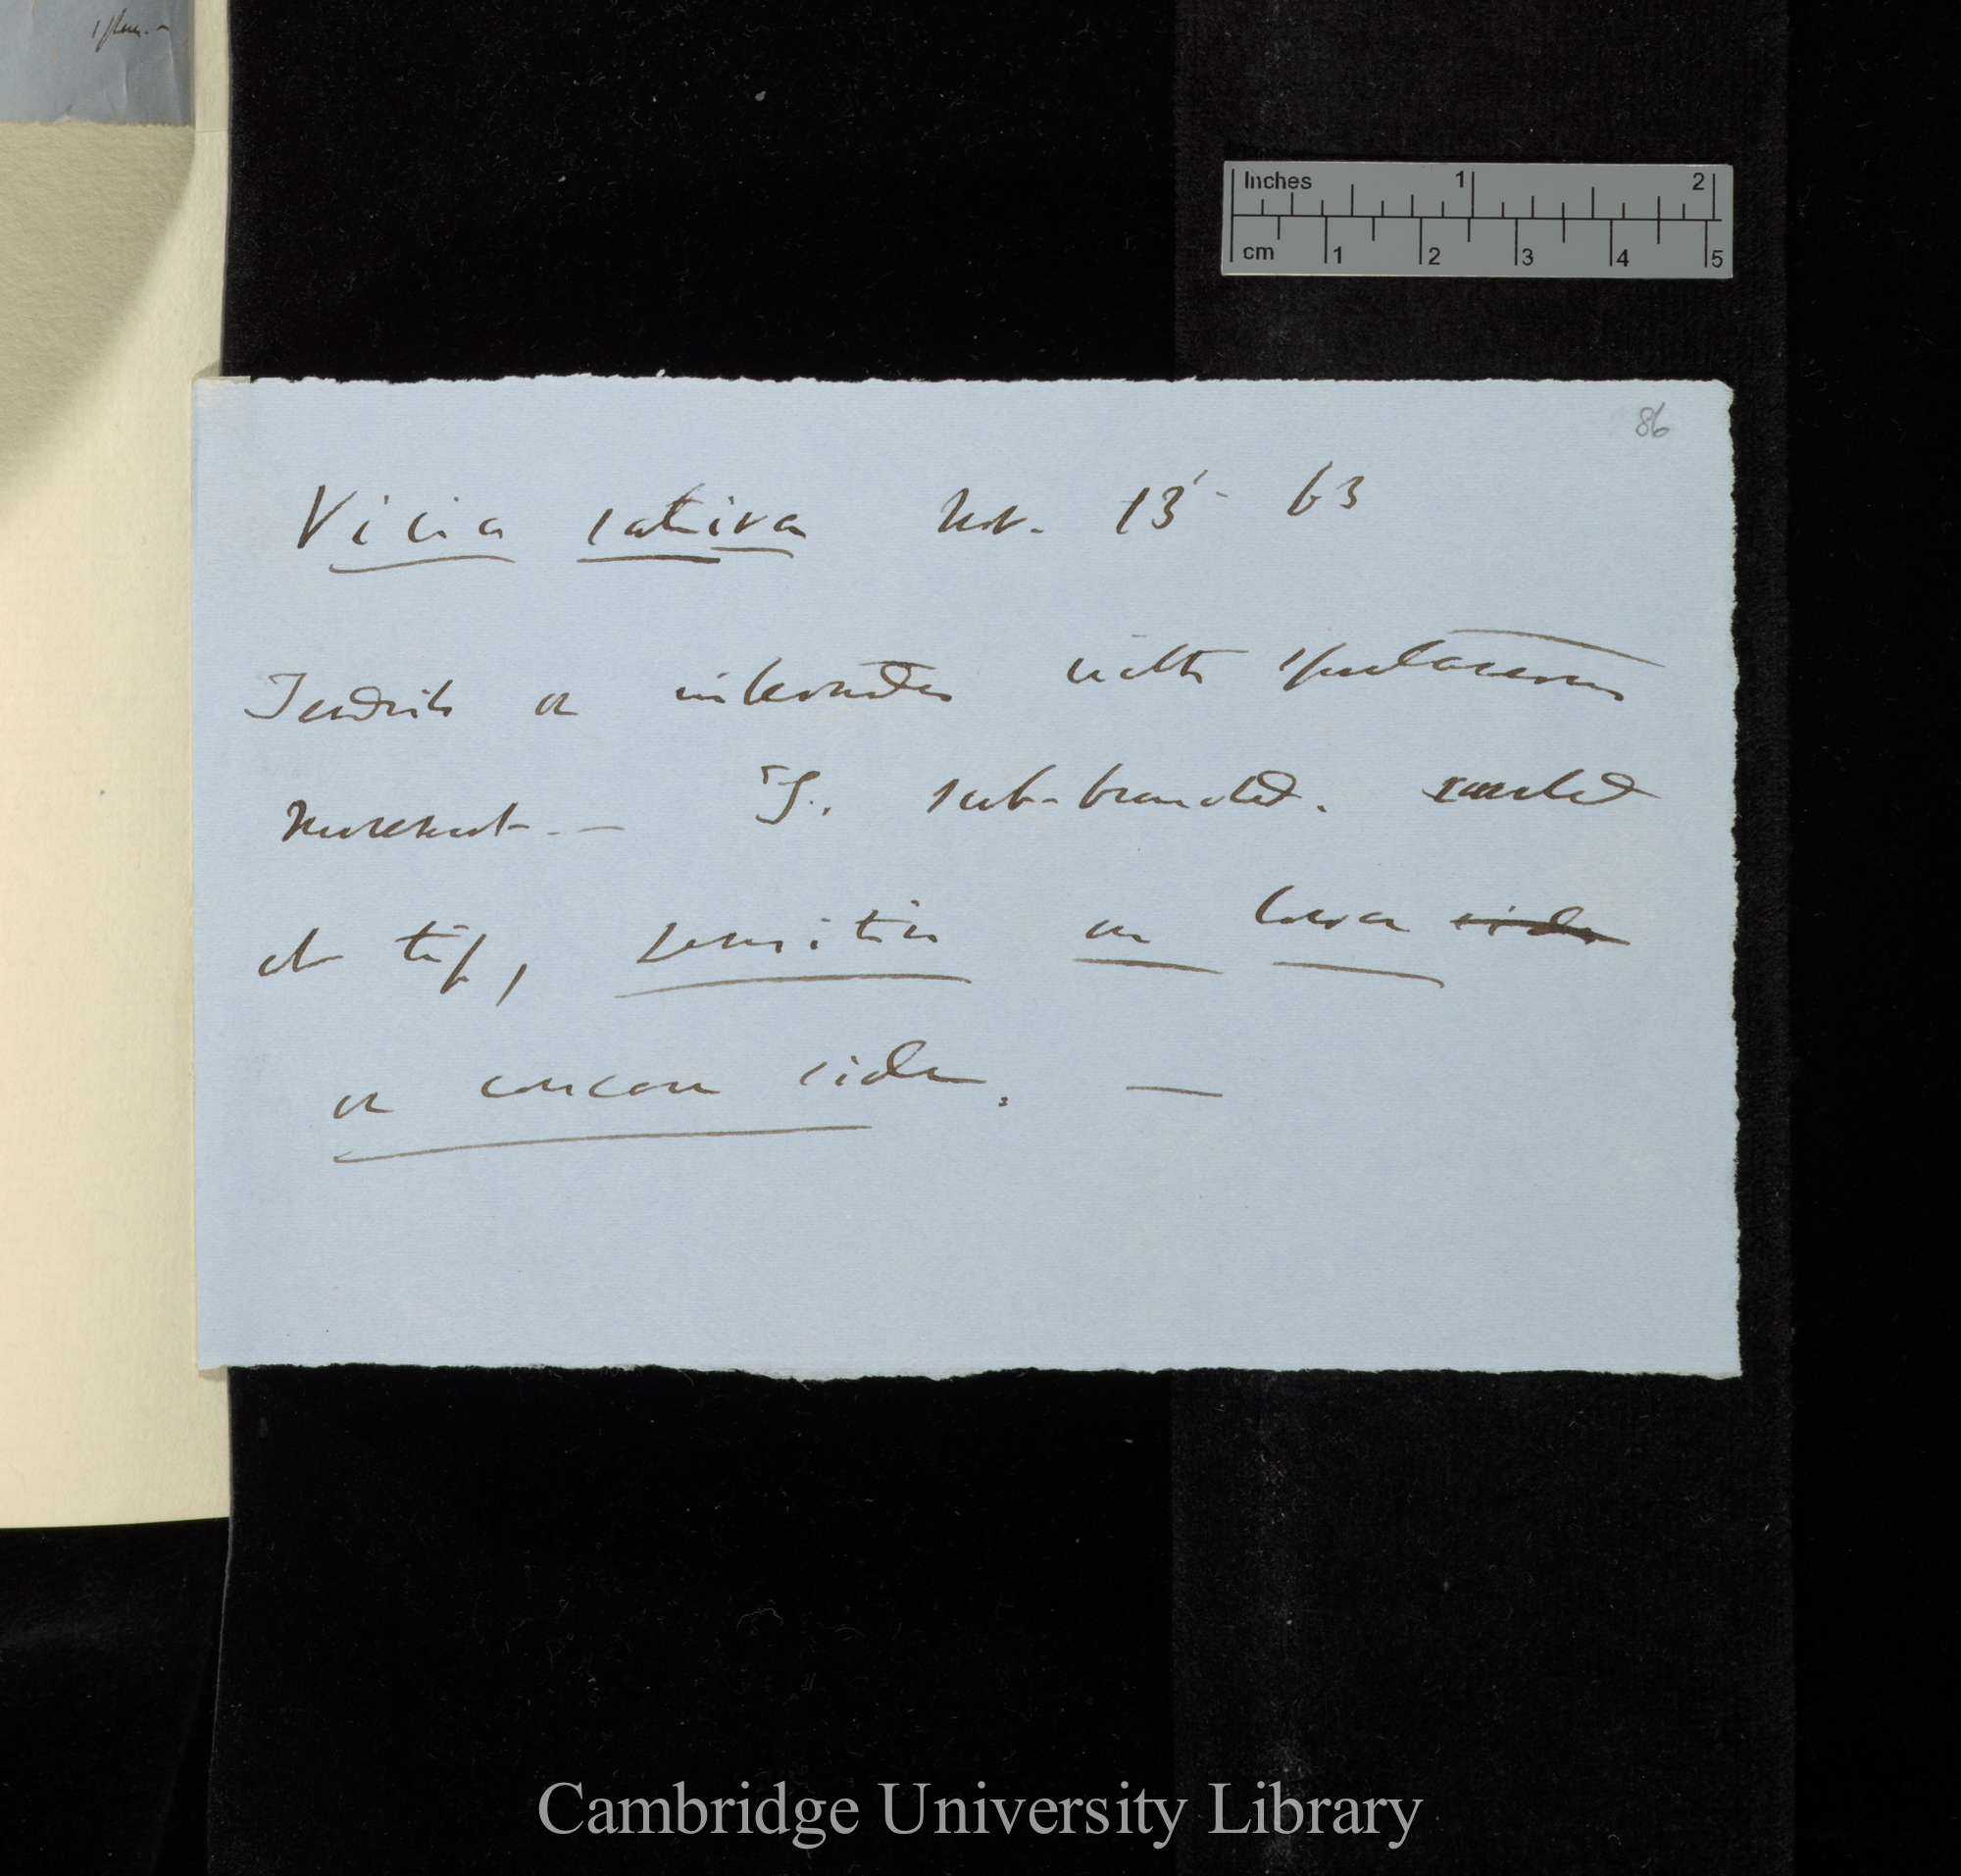 Inches 1 2
cm 1 2 3 4 5
86
Vicia sativa Nov. 13' - 63
Tendrils or internodes with spontaneous
movement. — sub-branched.
at tip, sensitive on lower side
or concave side. —
Cambridge University Library